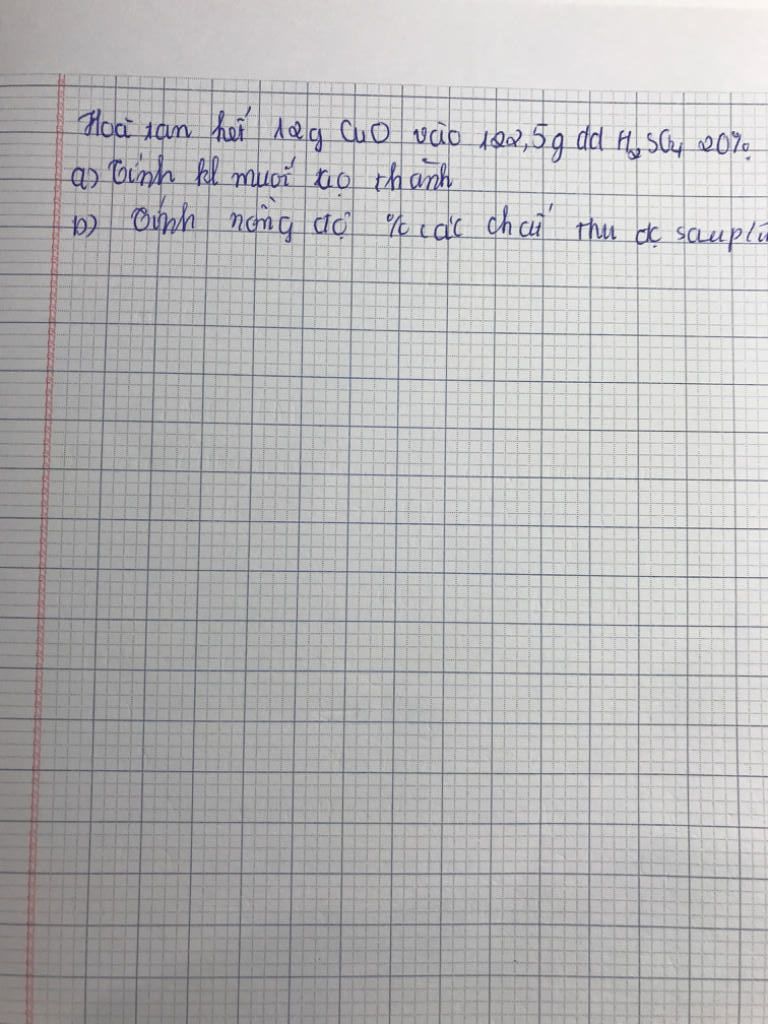 Hoà tan hết 12g CuO vào 122,5g dd H₂SO₄ 20%.
a) Tính kl muối tạo thành
b) Tính nồng độ % các chất thu đc sau